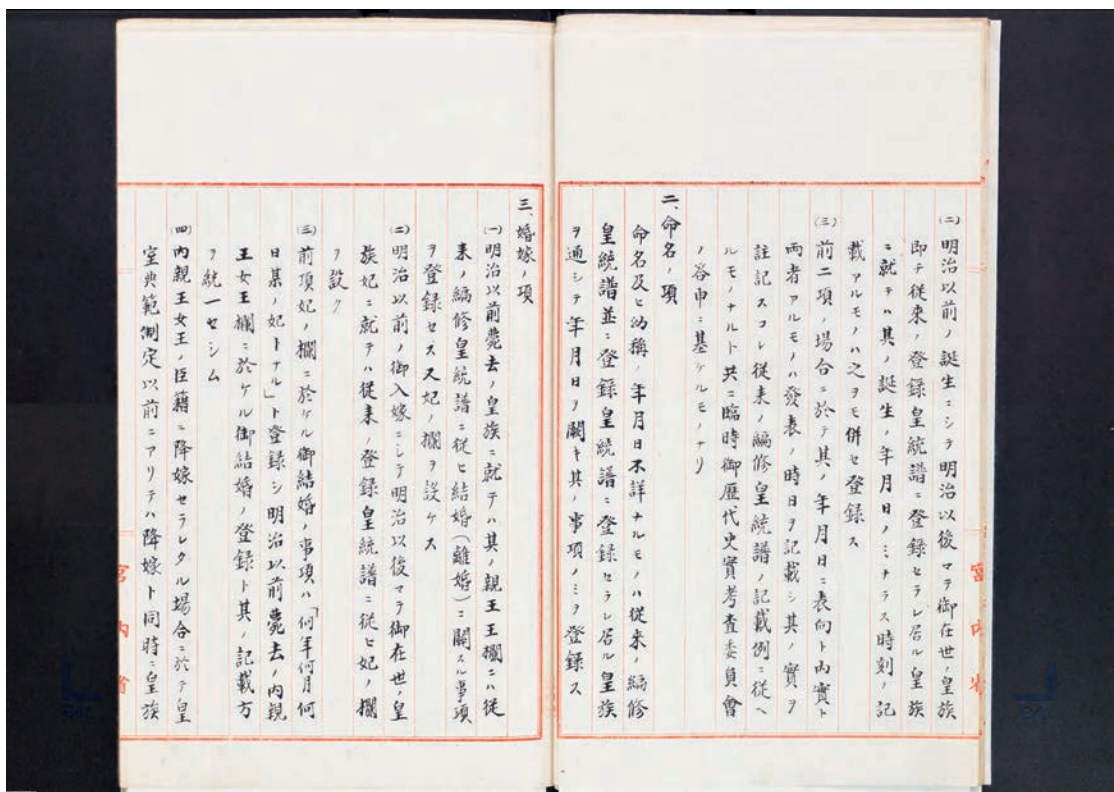 (二)明治以前ノ誕生ニシテ明治以後マテ御在世ノ皇族
即チ従來ノ登錄皇統譜ニ登錄セラレ居ル皇族
ニ就テハ其ノ誕生ノ年月日ノミナラス時刻ノ記
載アルモノハ之ヲモ併セ登錄ス
(三)前二項ノ場合ニ於テ其ノ年月日ニ表向ト内實ト
両者アルモノハ發表ノ時日ヲ記載シ其ノ實ヲ
註記スコレ従来ノ編修皇統譜ノ記載例ニ從ヘ
ルモノナルト共ニ臨時御歷代史實考査委員會
ノ答申ニ基ケルモノナリ
二、命名ノ項
命名及ヒ幼稱ノ年月日不詳ナルモノハ従来ノ編修
皇統譜並ニ登錄皇統譜ニ登錄セラレ居ル皇族
ヲ通シテ年月日ヲ闕キ其ノ事項ノミヲ登錄ス
宮内省
三、婚嫁ノ項
(一)明治以前薨去ノ皇族ニ就テハ其ノ親王王欄ニハ従
来ノ編修皇統譜ニ従ヒ結婚(離婚)ニ關スル事項
ヲ登録セズ又妃ノ欄ヲ設ケス
(二)明治以前ノ御入嫁ニシテ明治以後マテ御在世ノ皇
族妃ニ就テハ従来ノ登録皇統譜ニ従ヒ妃ノ欄
ヲ設ク
(三)前項妃ノ欄ニ於ケル御結婚ノ事項ハ「何年何月何
日某ノ妃トナル」ト登録シ明治以前薨去ノ内親
王女王欄ニ於ケル御結婚ノ登録ト其ノ記載方
ヲ統一セシム
(四)内親王女王ノ臣籍ニ降嫁セラレタル場合ニ於テ皇
室典範制定以前ニアリテハ降嫁ト同時ニ皇族
宮内省